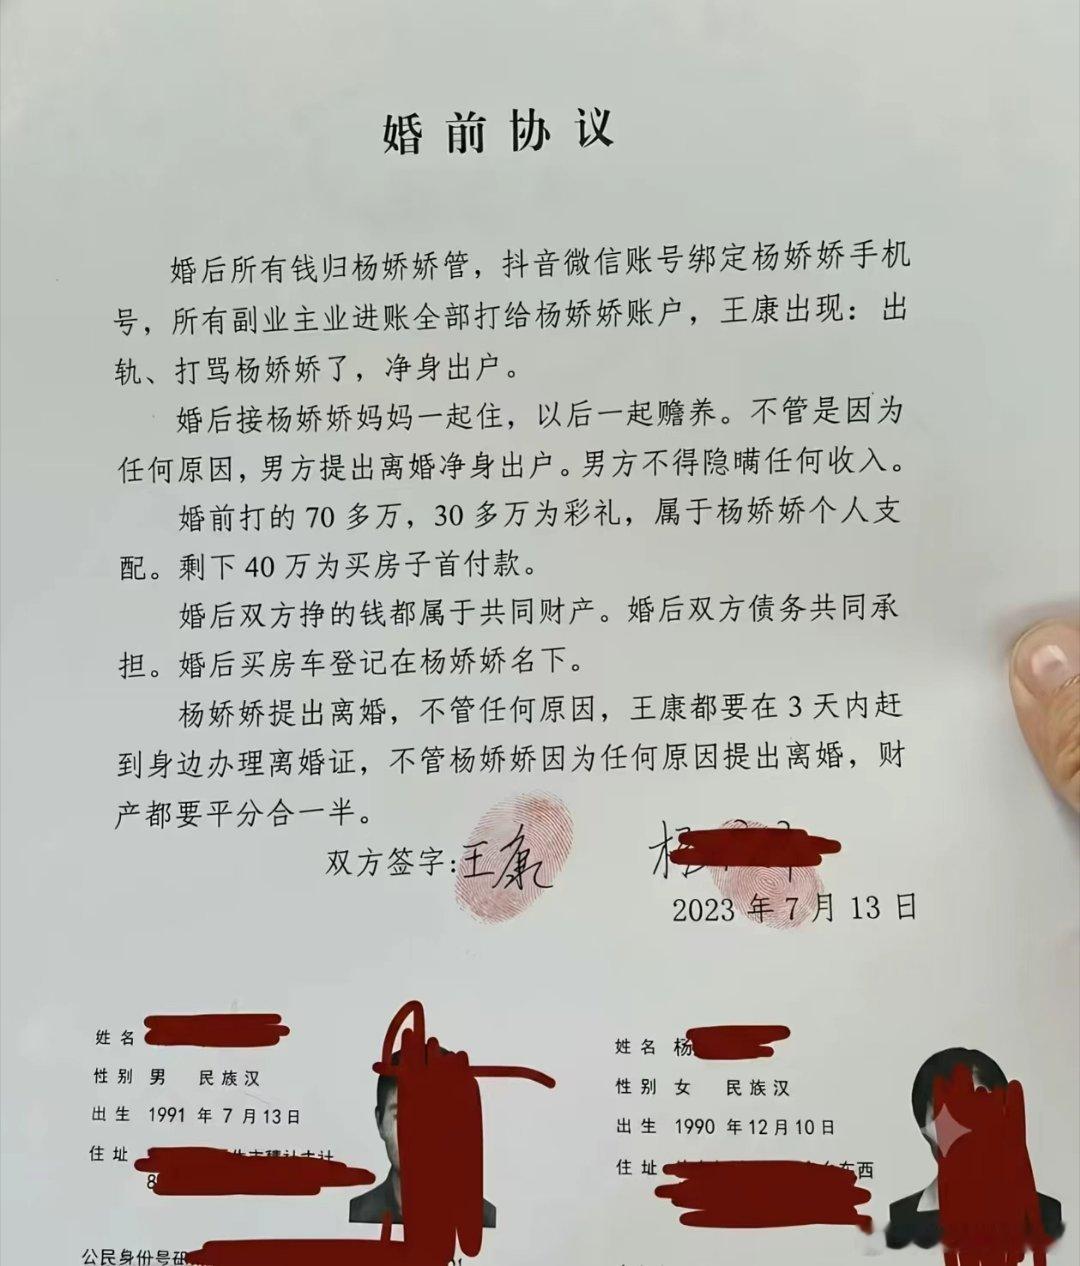 婚前协议
婚后所有钱归杨娇娇管，抖音微信账号绑定杨娇娇手机
号，所有副业主业进账全部打给杨娇娇账户，王康出现：出
轨、打骂杨娇娇了，净身出户。
婚后接杨娇娇妈妈一起住，以后一起赡养。不管是因为
任何原因，男方提出离婚净身出户。男方不得隐瞒任何收入。
婚前打的 70 多万，30 多万为彩礼，属于杨娇娇个人支
配。剩下 40 万为买房子首付款。
婚后双方挣的钱都属于共同财产。婚后双方债务共同承
担。婚后买房车登记在杨娇娇名下。
杨娇娇提出离婚，不管任何原因，王康都要在 3 天内赶
到身边办理离婚证，不管杨娇娇因为任何原因提出离婚，财
产都要平分合一半。
双方签字:王康 杨
2023 年 7 月 13 日
姓名
性别 男 民族汉
出生 1991 年 7 月 13 日
住址
8
公民身份号码
姓名 杨
性别 女 民族汉
出生 1990 年 12 月 10 日
住址 东西